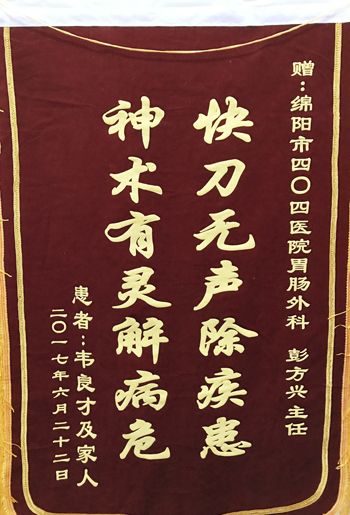 赠：绵阳市四〇四医院胃肠外科 彭方兴主任
快刀无声除疾患
神术有灵解病危
患者：韦良才及家人
二〇一七年六月二十二日